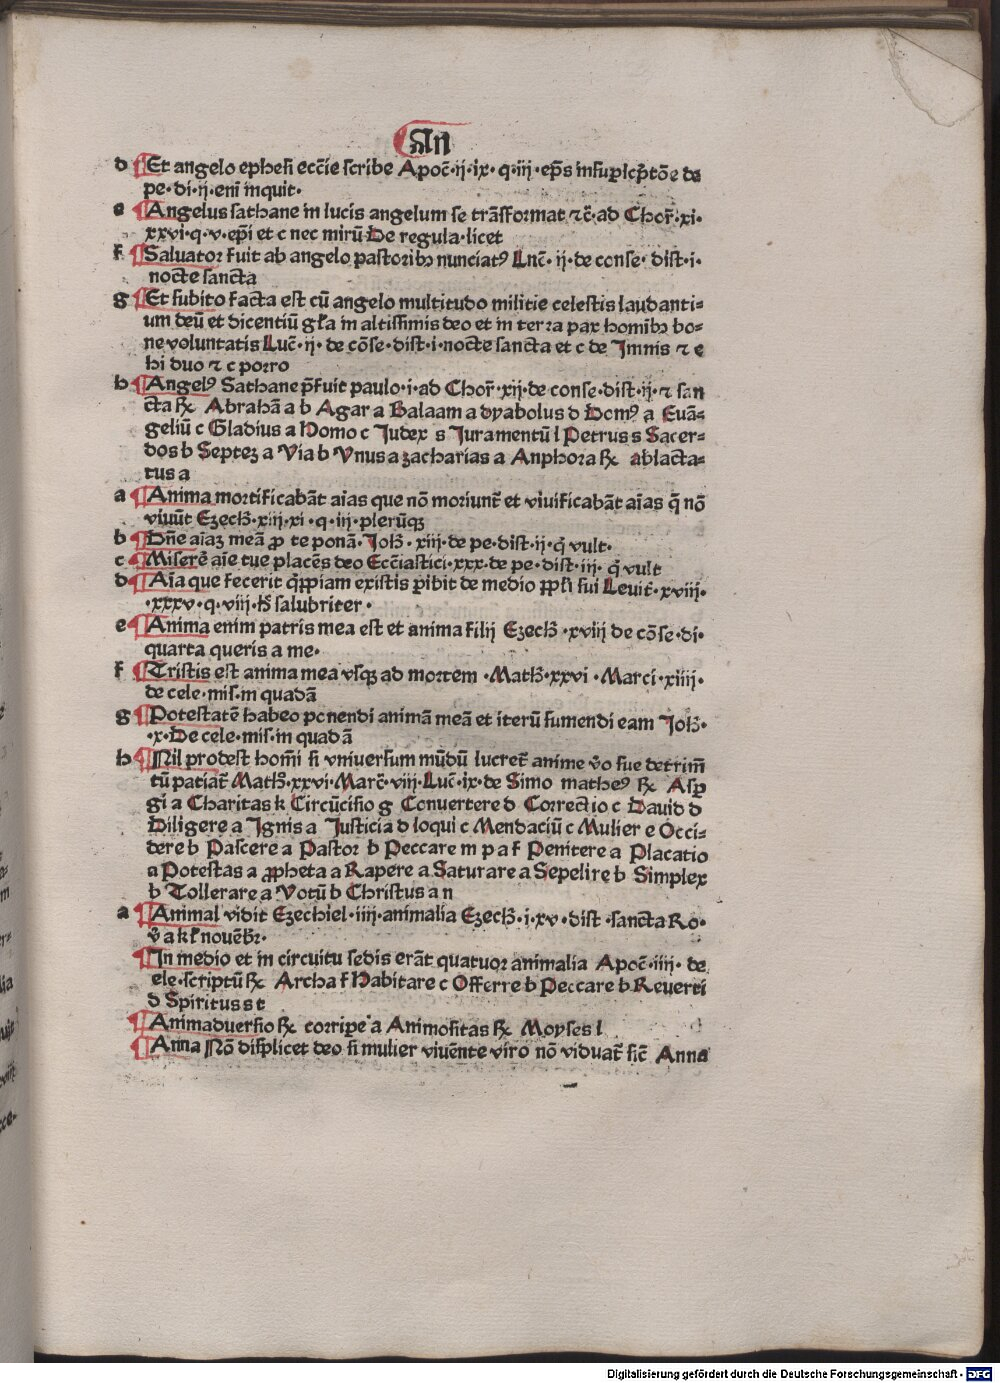 An
d Et angelo ephesi ecc̄ie scribe Apoc̄·ij·ix· q·iij·ep̄s insuꝑ de
pe·di·ij·enī inquit·
e Angelus sathane in lucis angelum se trāsformat ⁊c̄·ad Chor̄·xi·
xxvi·q·v·ep̄i et c nec mirū De regula·licet
f Saluator fuit ab angelo pastoribꝫ nunciatꝰ Luc̄· ij·de conse· dist·i·
nocte sancta
g Et subito facta est cū angelo multitudo militie celestis laudanti⸗
um deū et dicentiū gl̄a in altissimis deo et in terra pax homībꝫ bo⸗
ne voluntatis Luc̄·ij· de cōse·dist·i·nocte sancta et c de Imnis ⁊ e
hi duo ⁊ c porro
h Angelꝰ Sathane p̄fuit paulo·i·ad Chor̄·xij·de conse·dist·ij·⁊ san
cta ℞ Abrahā a b Agar a Balaam a dyabolus d Domꝰ a Euā⸗
geliū c Gladius a Homo c Judex s Juramentū l Petrus s Sacer⸗
dos b Septeꝫ a Via b Vnus a zacharias a Anphora ℞ ablacta⸗
tus a
a Anima mortificabāt aīas que nō moriunt̄ et viuificabāt aīas q̄ nō
viuūt Ezech̄·xiij·xi·q·iij·plerūqꝫ
b Dn̄e aīaꝫ meā ꝓ te ponā·Joh̄·xiij·de pe·dist·ij·q̄ vult·
c Miserē aīe tue placēs deo Ecc̄iastici·xxx·de pe·dist·iij·q̄ vult
d Aīa que fecerit q̄ꝓpiam existis ꝑibit de medio ppl̄i sui Leuit̄·xviij·
·xxxv·q·viij·h̄ salubriter·
e Anima enim patris mea est et anima filij Ezech̄·xviij de cōse·di·
quarta queris a me·
f Tristis est anima mea vsqꝫ ad mortem·Math̄·xxvi·Marci·xiiij·
de cele·mis·in quadā
g Potestatē habeo ponendi animā meā et iterū sumendi eam Joh̄·
·x·De cele·mis·in quadā
h Nil prodest homī si vniuersum mūdū lucret̄ anime v̄o sue detrim̄
tū patiat̄ Math̄·xxvi·Marc̄·viij·Luc̄·ix·de Simo matheꝰ ℞ Asꝑ
gi a Charitas k Circūcisio g Conuertere d Correctio c Dauid d
Diligere a Ignis a Justicia d loqui c Mendaciū c Mulier e Occi⸗
dere b Pascere a Pastor b Peccare m p a f Penitere a Placatio
a Potestas a ꝓpheta a Rapere a Saturare a Sepelire b Simplex
b Tollerare a Votū b Christus a n
a Animal vidit Ezechiel·iiij·animalia Ezech̄·i·xv·dist·sancta Ro·
v̄ a kl̄ nouēbr̄·
In medio et in circuitu sedis erāt quatuor animalia Apoc̄·iiij·de
ele·scriptū ℞ Archa f Habitare c Offerre b Peccare b Reuerti
d Spiritus s t
Animaduersio ℞ corripe a Animositas ℞ Moyses l
Anna Nō displicet deo si mulier viuente viro nō viduat̄ sic̄ Anna
Digitalisierung gefördert durch die Deutsche Forschungsgemeinschaft - DFG